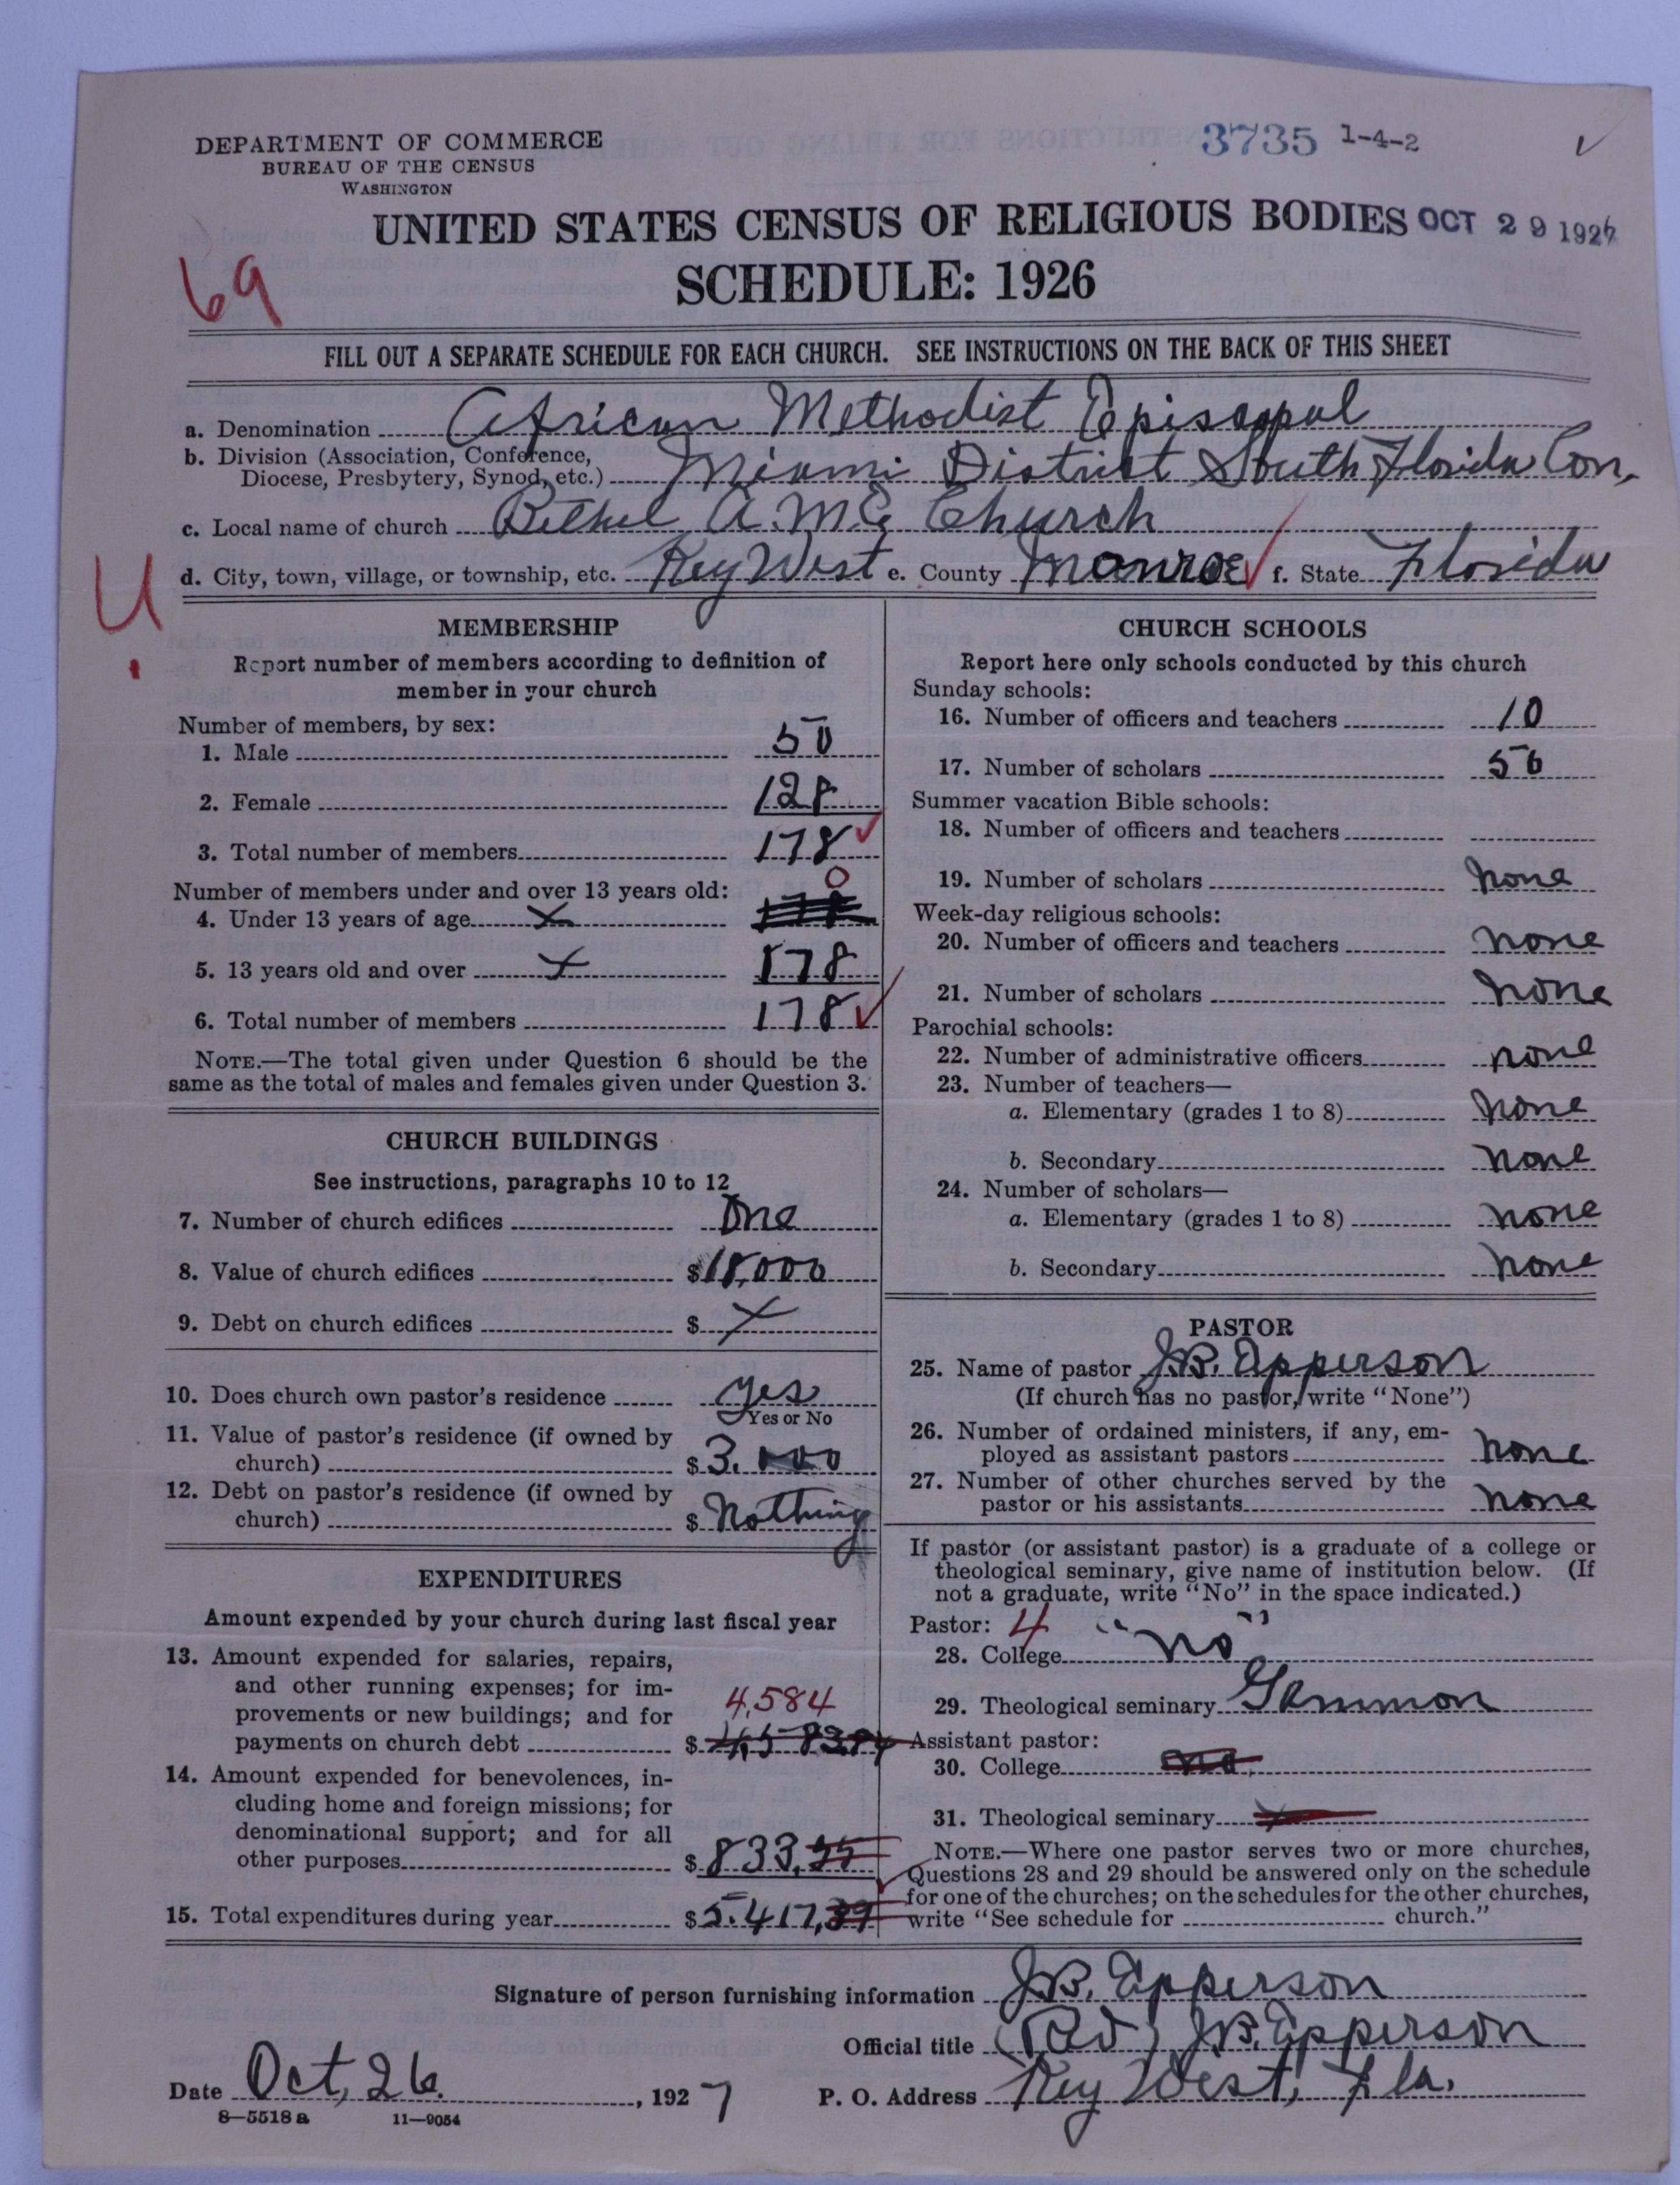 3735 1-4-2
DEPARTMENT OF COMMERCE
BUREAU OF THE CENSUS
WASHINGTON
UNITED STATES CENSUS OF RELIGIOUS BODIES OCT 29 1927
SCHEDULE: 1926
69
FILL OUT A SEPARATE SCHEDULE FOR EACH CHURCH. SEE INSTRUCTIONS ON THE BACK OF THIS SHEET
a. Denomination African Methodist Episcopal
b. Division (Association, Conference,
Diocese, Presbytery, Synod, etc.) Miami District South Florida Con.
c. Local name of church Bethel A.M.E. Church
d. City, town, village, or township, etc. Key West e. County Monroe f. State Florida
U.
MEMBERSHIP
Report number of members according to definition of
member in your church
Number of members, by sex:
1. Male 50
2. Female 128
3. Total number of members 178
Number of members under and over 13 years old: 0
4. Under 13 years of age x
5. 13 years old and over x 178
6. Total number of members 178
NOTE.—The total given under Question 6 should be the
same as the total of males and females given under Question 3.
CHURCH BUILDINGS
See instructions, paragraphs 10 to 12
7. Number of church edifices One
8. Value of church edifices $18,000
9. Debt on church edifices $ x
10. Does church own pastor's residence yes
Yes or No
11. Value of pastor's residence (if owned by
church) $3.000
12. Debt on pastor's residence (if owned by
church) $ Nothing
EXPENDITURES
Amount expended by your church during last fiscal year
13. Amount expended for salaries, repairs,
and other running expenses; for im-
provements or new buildings; and for 4,584
payments on church debt $ 4,583.84
14. Amount expended for benevolences, in-
cluding home and foreign missions; for
denominational support; and for all
other purposes $ 833,55
15. Total expenditures during year $5.417,39
CHURCH SCHOOLS
Report here only schools conducted by this church
Sunday schools:
16. Number of officers and teachers 10
17. Number of scholars 50
Summer vacation Bible schools:
18. Number of officers and teachers
19. Number of scholars none
Week-day religious schools:
20. Number of officers and teachers none
21. Number of scholars none
Parochial schools:
22. Number of administrative officers none
23. Number of teachers—
a. Elementary (grades 1 to 8) none
b. Secondary none
24. Number of scholars—
a. Elementary (grades 1 to 8) none
b. Secondary none
PASTOR
25. Name of pastor J.B. Epperson
(If church has no pastor, write "None")
26. Number of ordained ministers, if any, em-
ployed as assistant pastors none
27. Number of other churches served by the
pastor or his assistants none
If pastor (or assistant pastor) is a graduate of a college or
theological seminary, give name of institution below. (If
not a graduate, write "No" in the space indicated.)
Pastor: 4
28. College "no"
29. Theological seminary Gammon
Assistant pastor:
30. College no
31. Theological seminary x
NOTE.—Where one pastor serves two or more churches,
Questions 28 and 29 should be answered only on the schedule
for one of the churches; on the schedules for the other churches,
write "See schedule for church."
Signature of person furnishing information J.B. Epperson
Official title (Rev) J.B. Epperson
Date Oct, 26, 1927 P. O. Address Key West, Fla.
8—5518a 11—9054